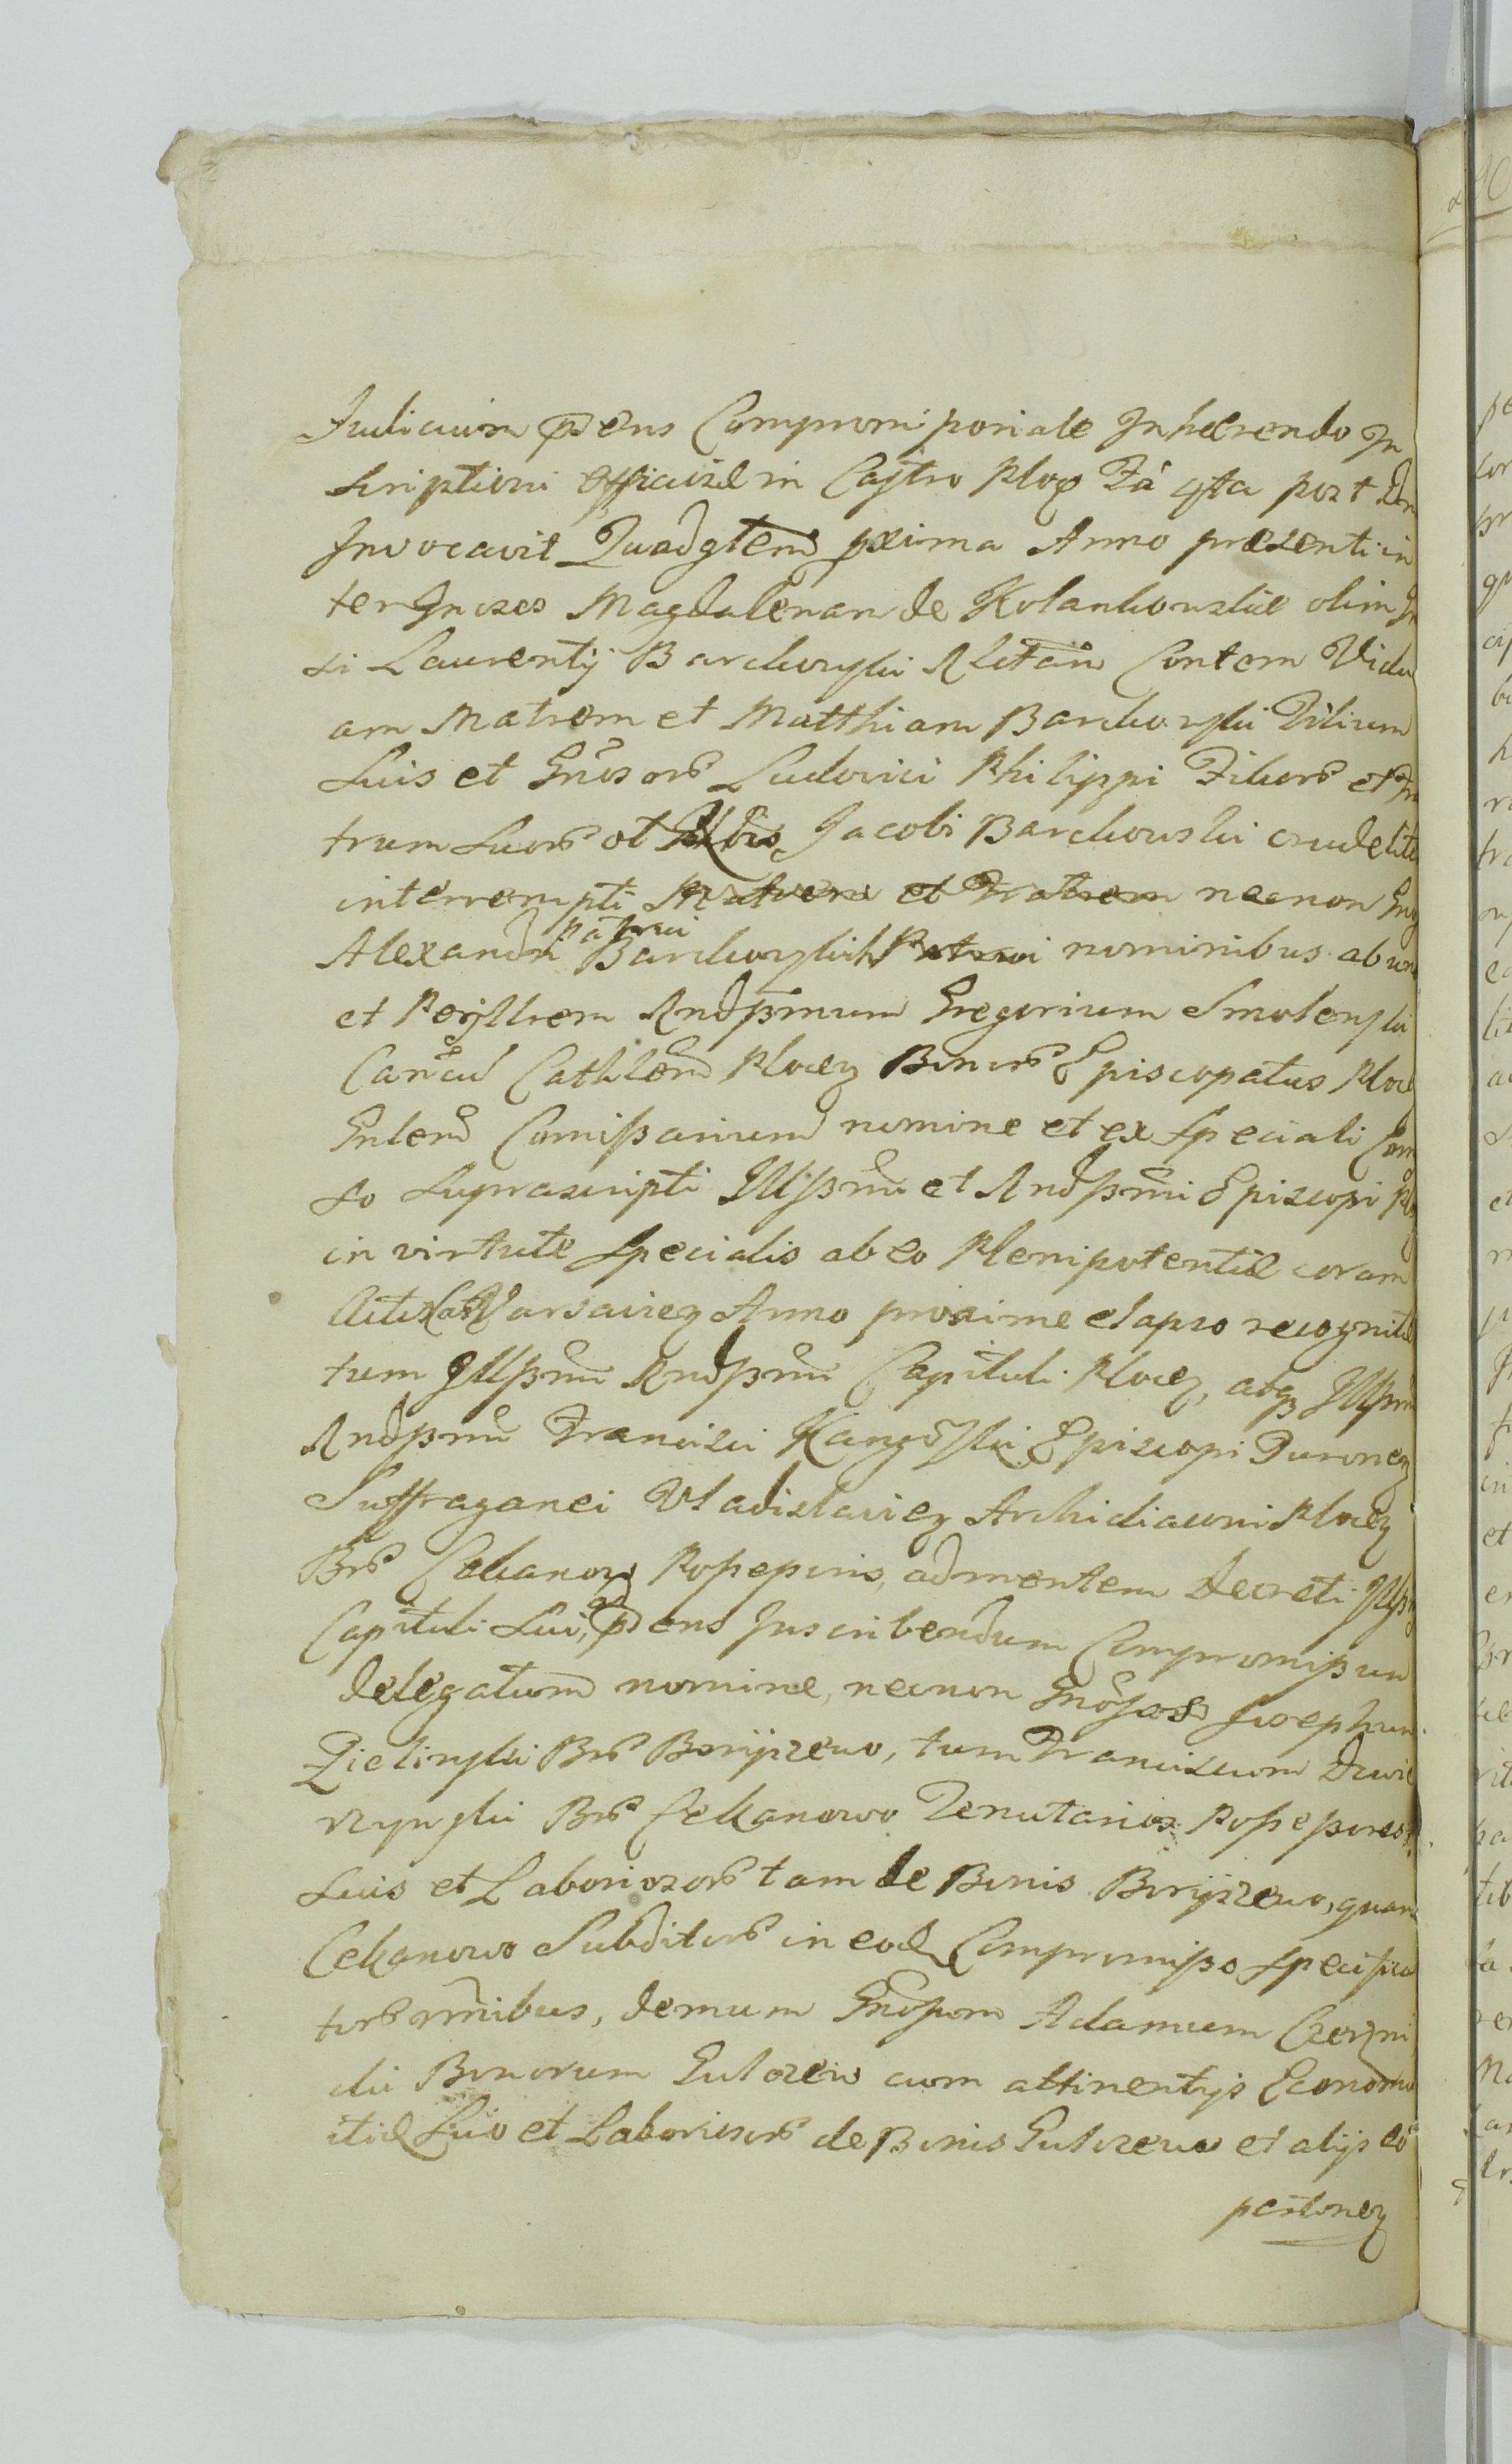 Judicium pñens Compromissoriale Inhærendo In
scriptioni officiosæ in Castro Ploc Fâ 4ta post Dom
Invocavit Quadgtem pxima Anno præsenti in
ter Gnosos Magdalenam de Kolankowskie olim Gn
si Laurentij Barckowski Relictam Contem Vidu
am Matrem et Matthiam Barckowski Filium
suis et Gnosorum Ludovici Philippi Filiorum et Fra
trum suorum et Jacobi Barckowski crudeliter
interrempti Matrem et Fratrem necnon Gno
Alexandri patrui Barckowski Patrui nominibus ab una
et Perjllrem Rndssmum Gregorium Smolenski
Cancum Cathlem Plocen Bonorum Episcopatus Ploc
Gnlem Comissarium nomine et ex speciali Con
so suprascripti Illssmi et Rndssmi Episcopi Plo
in virtute specialis ab eo Plenipotentiæ coram
Actis Varsavien Anno proxime elapso recognitæ
tum Illssmi Rndssmi Capituli Plocen, atq Illssmi
Rndssmi Francisci Episcopi
Suffraganei Vladislavien Archidiaconi Plocen
Brum Cekanowo Possessoris, ad mentem decreti Illssmi
Capituli sui, ad pñens Inscribendum Compromissum
delegatum nomine, necnon Gnosos Josephum
Zielinski Brum Boryszewo, tum Franciscum
Brum Cekanowo Tenutarios Possessores
suis et Laboriosorum tam de Bonis Boryszewo, quam
Cekanowo Subditorum in eod Compromisso specifica
torum omnibus, demum Gnosum Adamum
cki Bonorum Gulczewo cum attinentijs Economu
itid suo et Laboriosorum de Bonis Gulczewo et alijs eo
pertinen